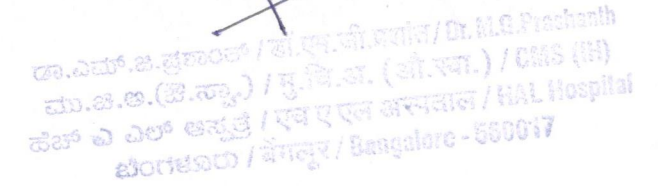 ಡಾ.ಎಮ್.ಜಿ.ಪ್ರಶಾಂತ್ / डा.एम.जी.प्रशांत / Dr. M.G.Prashanth
ಮು.ಚಿ.ಅ.(ಔ.ಸ್ವಾ.) / मु.चि.अ. (औ.स्वा.) / CMS (IH)
ಹೆಚ್ ಎ ಎಲ್ ಆಸ್ಪತ್ರೆ / एच ए एल अस्पताल / HAL Hospital
ಬೆಂಗಳೂರು / बेंगलूर / Bangalore - 560017